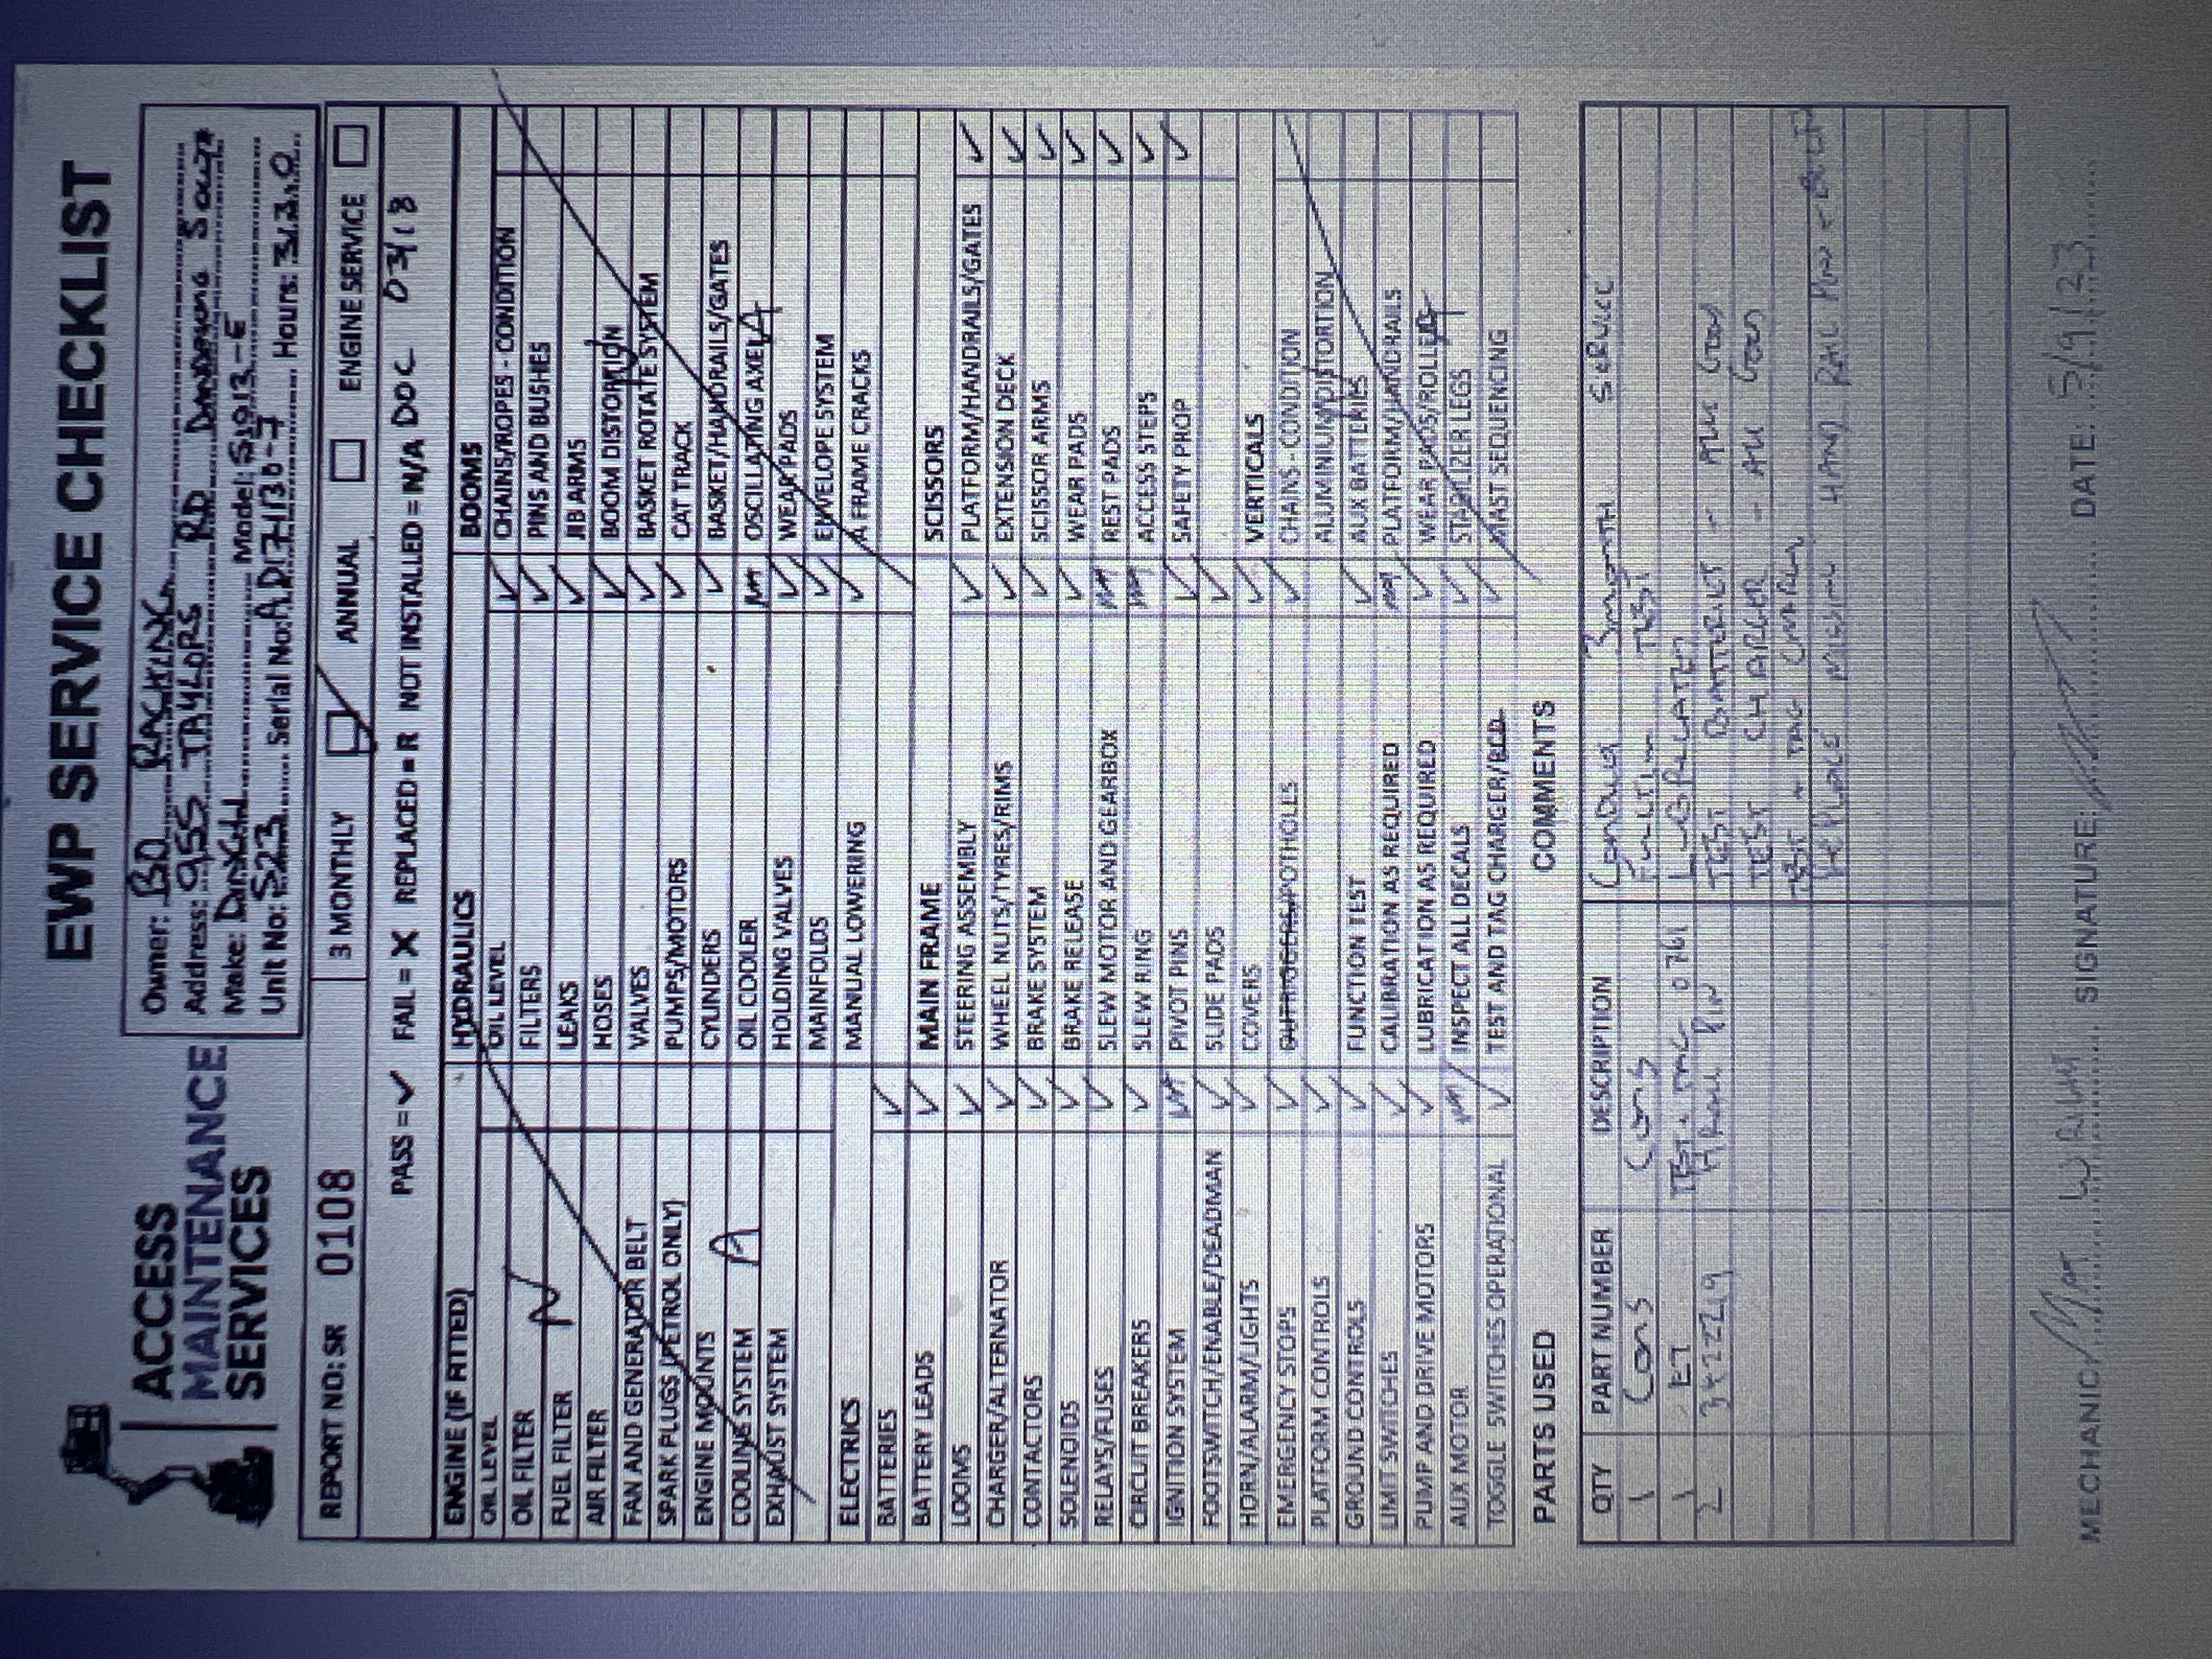 EWP SERVICE CHECKLIST
ACCESS
MAINTENANCE
SERVICES
Owner: BD RACKING
Address: 955 TAYLORS RD DANDENONG South
Make: Dingli Model: S1912-E
Unit No: S23 Serial No: Hours: 313.0
REPORT NO: SR 0108
3 MONTHLY ANNUAL ENGINE SERVICE
PASS = ✓ FAIL = X REPLACED = R NOT INSTALLED = N/A DOC 03/18
ENGINE (IF FITTED)
OIL LEVEL
OIL FILTER
FUEL FILTER N
AIR FILTER
FAN AND GENERATOR BELT
SPARK PLUGS (PETROL ONLY)
ENGINE MOUNTS
COOLING SYSTEM A
EXHAUST SYSTEM
ELECTRICS
BATTERIES ✓
BATTERY LEADS ✓
LOOMS ✓
CHARGER/ALTERNATOR ✓
CONTACTORS ✓
SOLENOIDS ✓
RELAYS/FUSES ✓
CIRCUIT BREAKERS ✓
IGNITION SYSTEM N/A
FOOTSWITCH/ENABLE/DEADMAN ✓
HORN/ALARM/LIGHTS ✓
EMERGENCY STOPS ✓
PLATFORM CONTROLS ✓
GROUND CONTROLS ✓
LIMIT SWITCHES ✓
PUMP AND DRIVE MOTORS ✓
AUX MOTOR N/A
TOGGLE SWITCHES OPERATIONAL ✓
HYDRAULICS
OIL LEVEL ✓
FILTERS ✓
LEAKS ✓
HOSES ✓
VALVES ✓
PUMPS/MOTORS ✓
CYLINDERS ✓
OIL COOLER N/A
HOLDING VALVES ✓
MAINFOLDS ✓
MANUAL LOWERING ✓
MAIN FRAME
STEERING ASSEMBLY ✓
WHEEL NUTS/TYRES/RIMS ✓
BRAKE SYSTEM ✓
BRAKE RELEASE ✓
SLEW MOTOR AND GEARBOX N/A
SLEW RING N/A
PIVOT PINS ✓
SLIDE PADS ✓
COVERS ✓
OUTRIGGERS/POTHOLLS ✓
FUNCTION TEST ✓
CALIBRATION AS REQUIRED N/A
LUBRICATION AS REQUIRED ✓
INSPECT ALL DECALS ✓
TEST AND TAG CHARGER/RCD ✓
BOOMS
CHAINS/ROPES - CONDITION
PINS AND BUSHES
JIB ARMS
BOOM DISTORTION
BASKET ROTATE SYSTEM
CAT TRACK
BASKET/HANDRAILS/GATES
OSCILLATING AXEL
WEAR PADS
ENVELOPE SYSTEM
A FRAME CRACKS
SCISSORS
PLATFORM/HANDRAILS/GATES ✓
EXTENSION DECK ✓
SCISSOR ARMS ✓
WEAR PADS ✓
REST PADS ✓
ACCESS STEPS ✓
SAFETY PROP ✓
VERTICALS
CHAINS - CONDITION
ALUMINIUM/DISTORTION
AUX BATTERIES
PLATFORM/HANDRAILS
WEAR PADS/ROLLER
STABILIZER LEGS
MAST SEQUENCING
PARTS USED
QTY PART NUMBER DESCRIPTION
1 Cons Cons
1 ET TEST + TAG 0761
2 HAND PIN
COMMENTS
Conduct 3 month SERVICE
Function TEST
LUBRICATED
TEST BATTERIES - ALL Good
TEST CHARGER - ALL Good
TEST + TAG
REPLACE HAND RAIL PIN
MECHANIC: SIGNATURE: DATE: 5/9/23